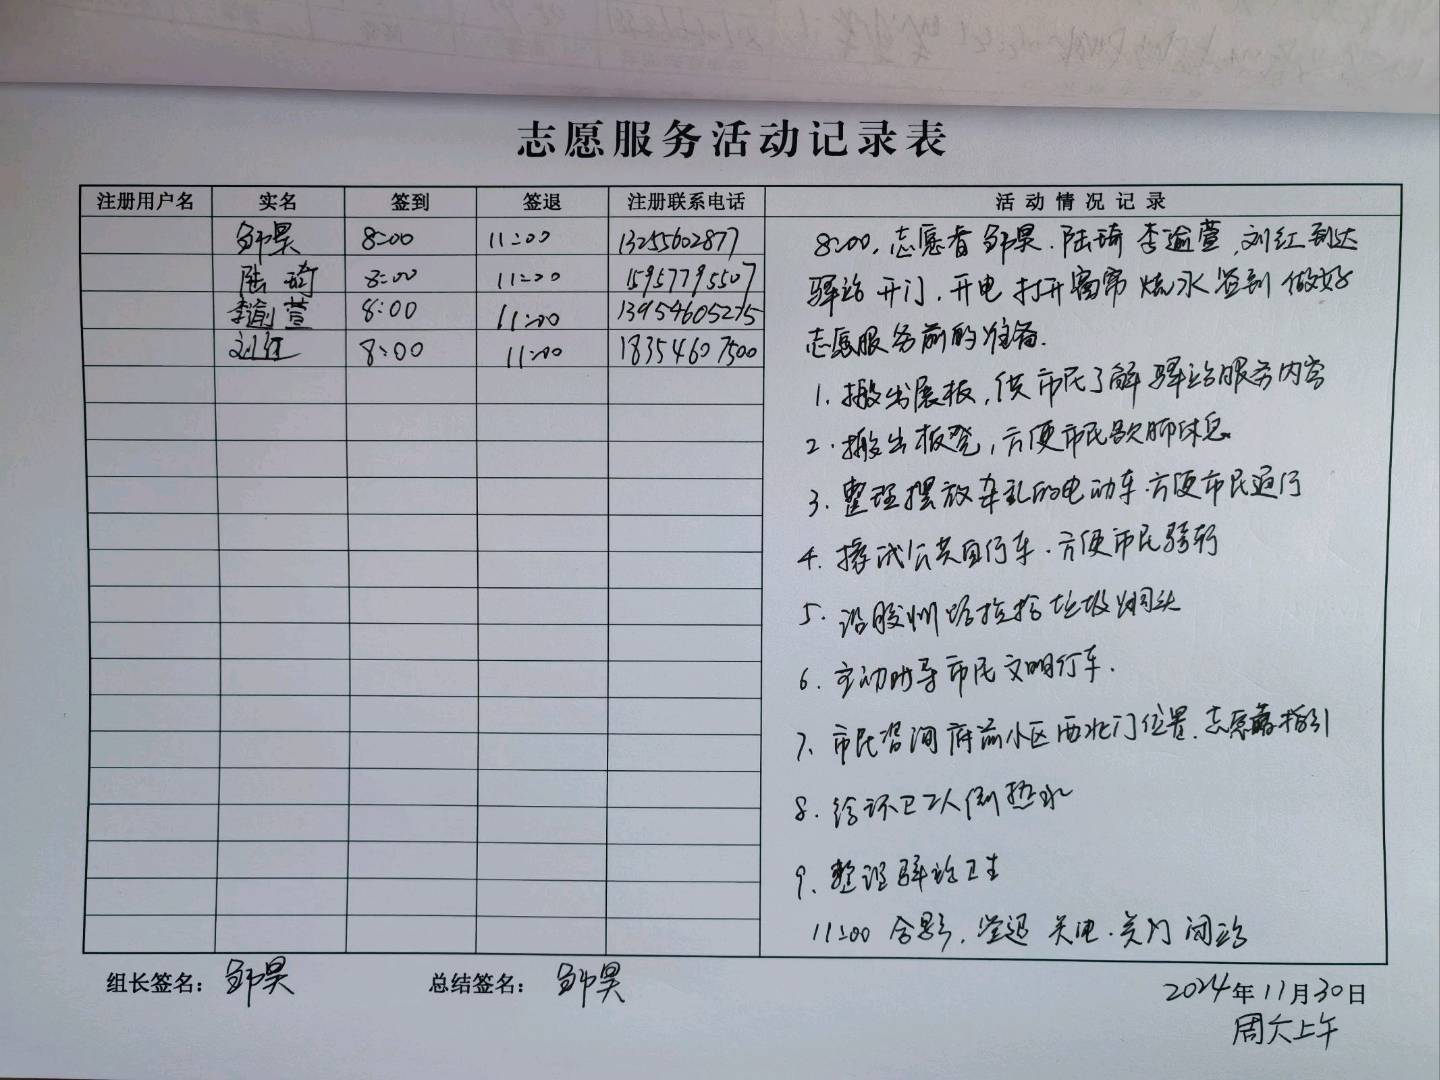 志愿服务活动记录表
注册用户名 实名 签到 签退 注册联系电话 活动情况记录
邹昊 8:00 11:00 13255602877
陆琦 8:00 11:00 15957795507
李逾萱 8:00 11:00 13954605275
刘红 8:00 11:00 18354607500
8:00,志愿者邹昊.陆琦 李逾萱,刘红到达
驿站 开门,开电 打开窗帘 烧水 签到 做好
志愿服务前的准备.
1.搬出展板,供市民了解驿站服务内容
2.搬出板凳,方便市民歇脚休息
3.整理摆放杂乱的电动车.方便市民通行
4.擦拭公共自行车.方便市民骑行
5.沿胶州路捡拾垃圾烟头
6.主动劝导市民文明行车.
7、市民咨询府前小区西北门位置.志愿者指引
8.给环卫工人倒热水
9、整理驿站卫生
11:00 合影,签退 关电.关门 闭站
组长签名:邹昊 总结签名:邹昊
2024年11月30日
周六上午